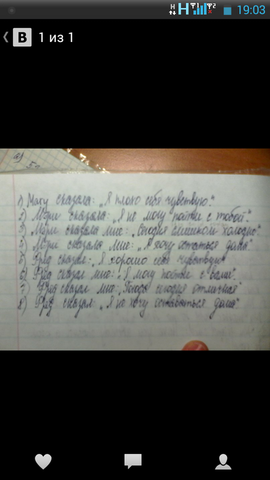 19:03
В 1 из 1
1) Мэри сказала: „Я плохо себя чувствую".
2) Мэри сказала: „Я не могу пойти с тобой".
3) Мэри сказала мне: „Сегодня слишком холодно"
Мэри сказала мне: „Я хочу остаться дома"
5) Фред сказал: „Я хорошо себя чувствую"
6) Фред сказал мне: „Я могу пойти с вами".
7) Фред сказал мне: „Погода сегодня отличная"
8) Фред сказал: „Я не хочу оставаться дома"